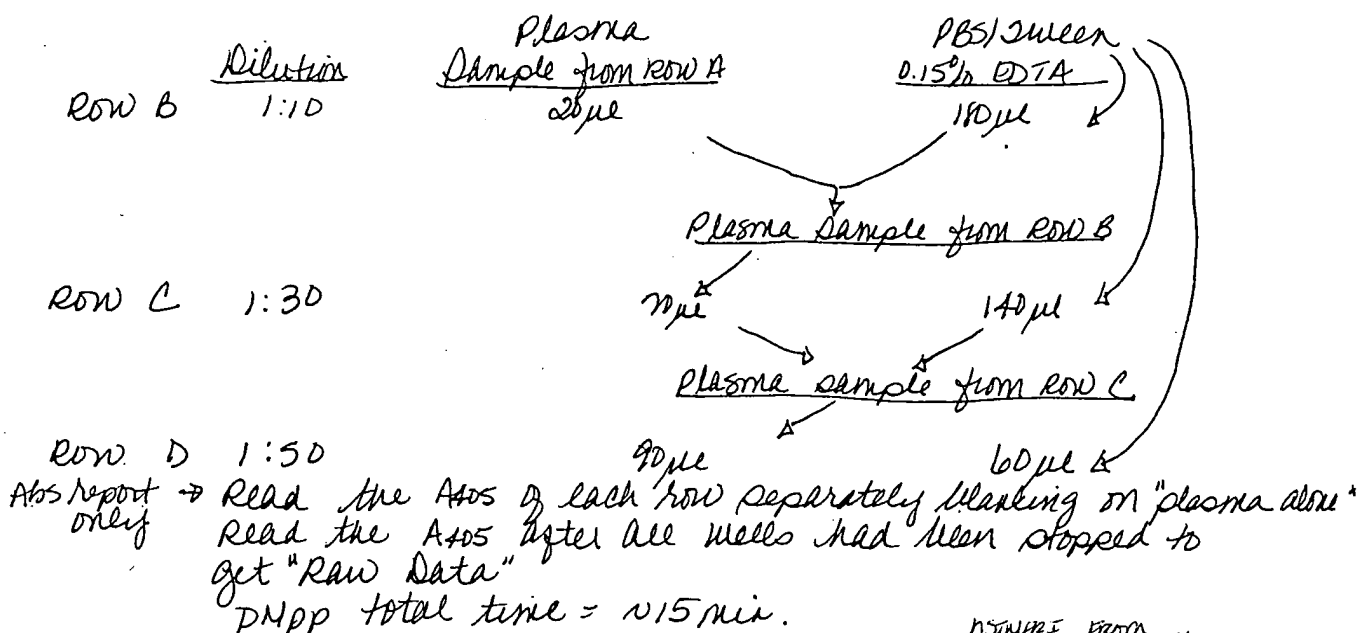 Plasma PBS/Tween
Dilution Sample from Row A 0.15% EDTA
Row B 1:10 20µl 180µl
Plasma Sample from Row B
Row C 1:30 70µl 140µl
Plasma Sample from Row C
Row D 1:50 90µl 60µl
Abs report → Read the A405 of each row separately blanking on "plasma alone"
only Read the A405 after all wells had been stopped to
get "Raw Data"
total time = ~15 min.
FROM